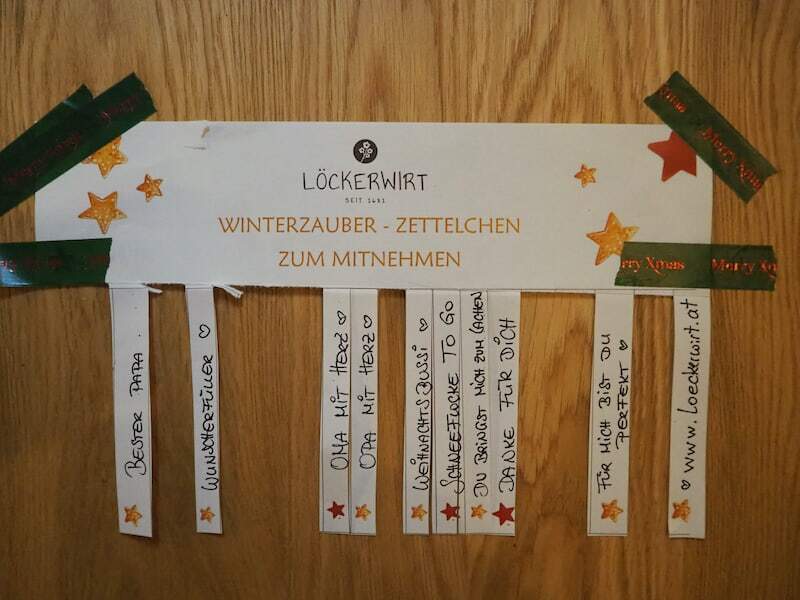 LÖCKERWIRT
SEIT 1681
WINTERZAUBER - ZETTELCHEN
ZUM MITNEHMEN
rry Xmas
Merry X
BESTER PAPA.
WUNSCHERFÜLLER ♡
OMA MIT HERZ ♡
OPA MIT HERZ ♡
WEIHNACHTSBUSSI ♡
SCHNEEFLOCKE TO GO
DU BRINGST MICH ZUM LACHEN
DANKE FÜR DICH
FÜR MICH BIST DU
PERFEKT ♡
♡ www.loeckerwirt.at